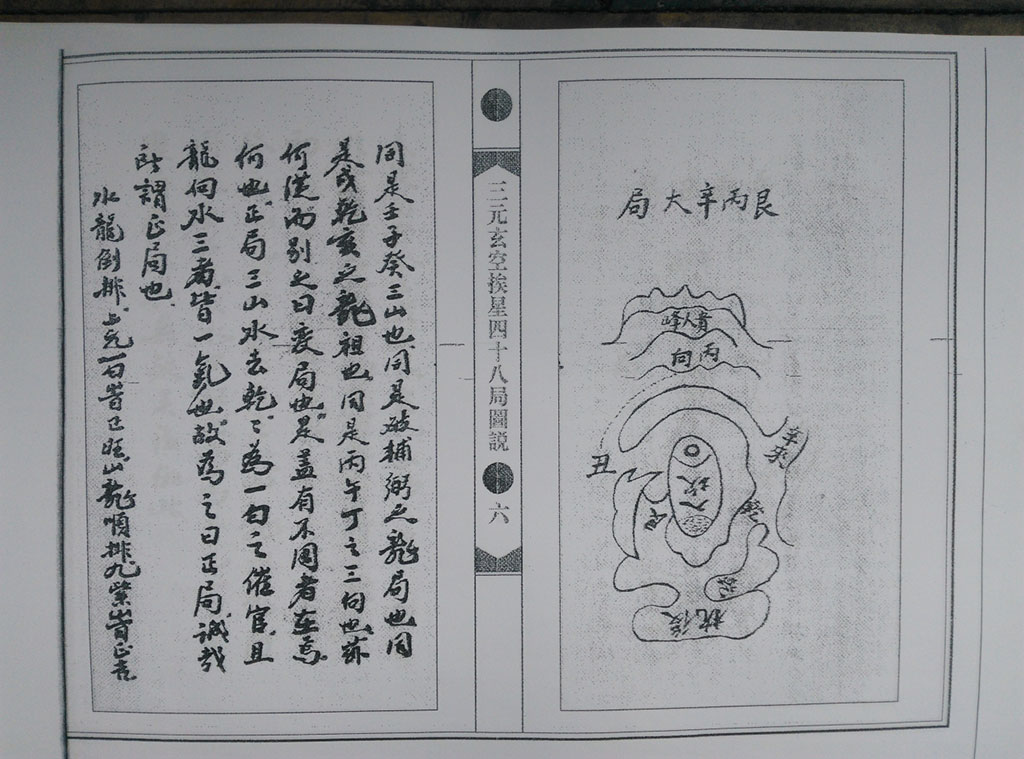 艮丙辛大局
貴人峰
丙向
辛水
丑
後枕
三元玄空挨星四十八局圖説
六
同是壬子癸三山也同是破輔弼之龍局也同
是戌乾亥之龍祖也同是丙午丁之三向也
何從而別之曰变局也是盖有不同者在焉
何也正局三山水去乾乾為一白之催官且
龍向水三者皆一氣也故為之曰正局誠哉
所謂正局也
水龍倒排上元一白皆已旺山龍順排九紫皆正吉